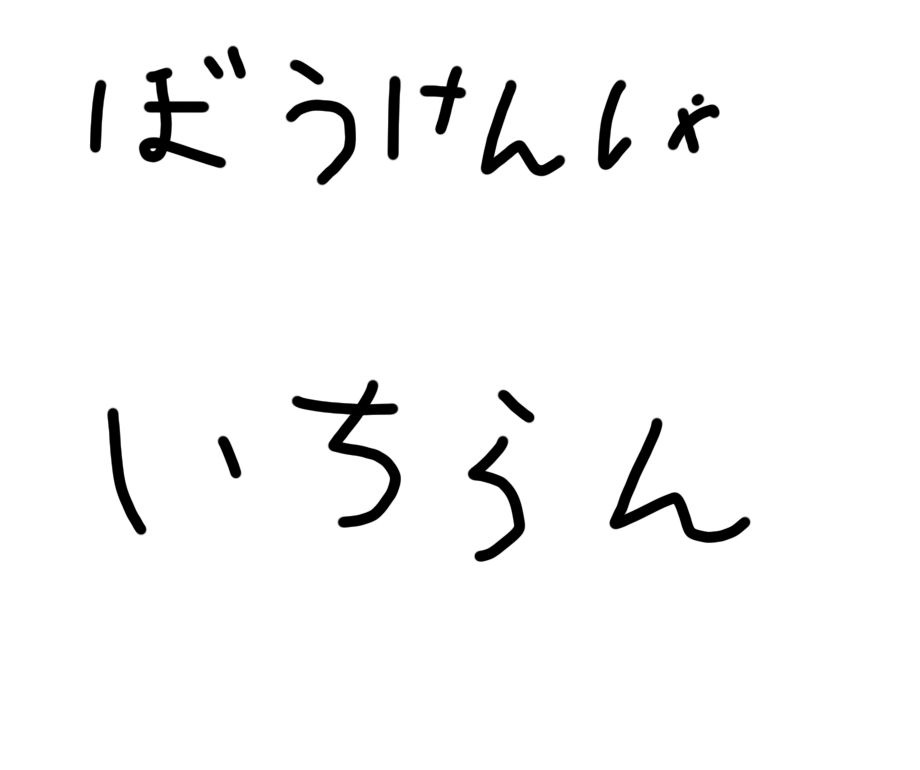 ぼうけんしゃ
いちらん